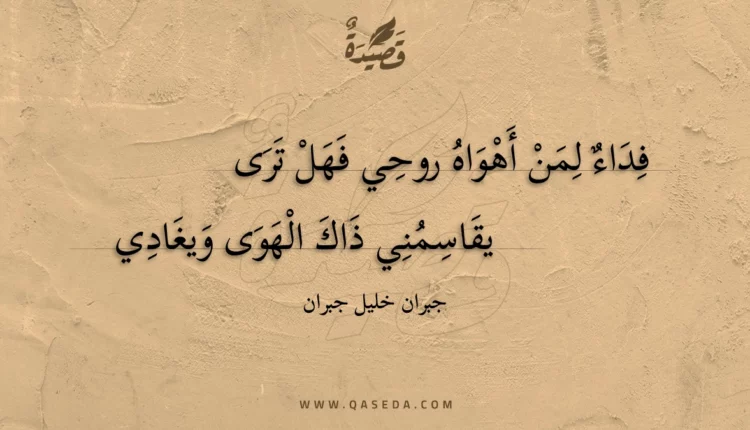 قَصِيدَةٌ
فِدَاءٌ لِمَنْ أَهْوَاهُ روحِي فَهَلْ تَرَى
يقَاسِمُنِي ذَاكَ الْهَوَى وَيغَادِي
جبران خليل جبران
WWW.QASEDA.COM